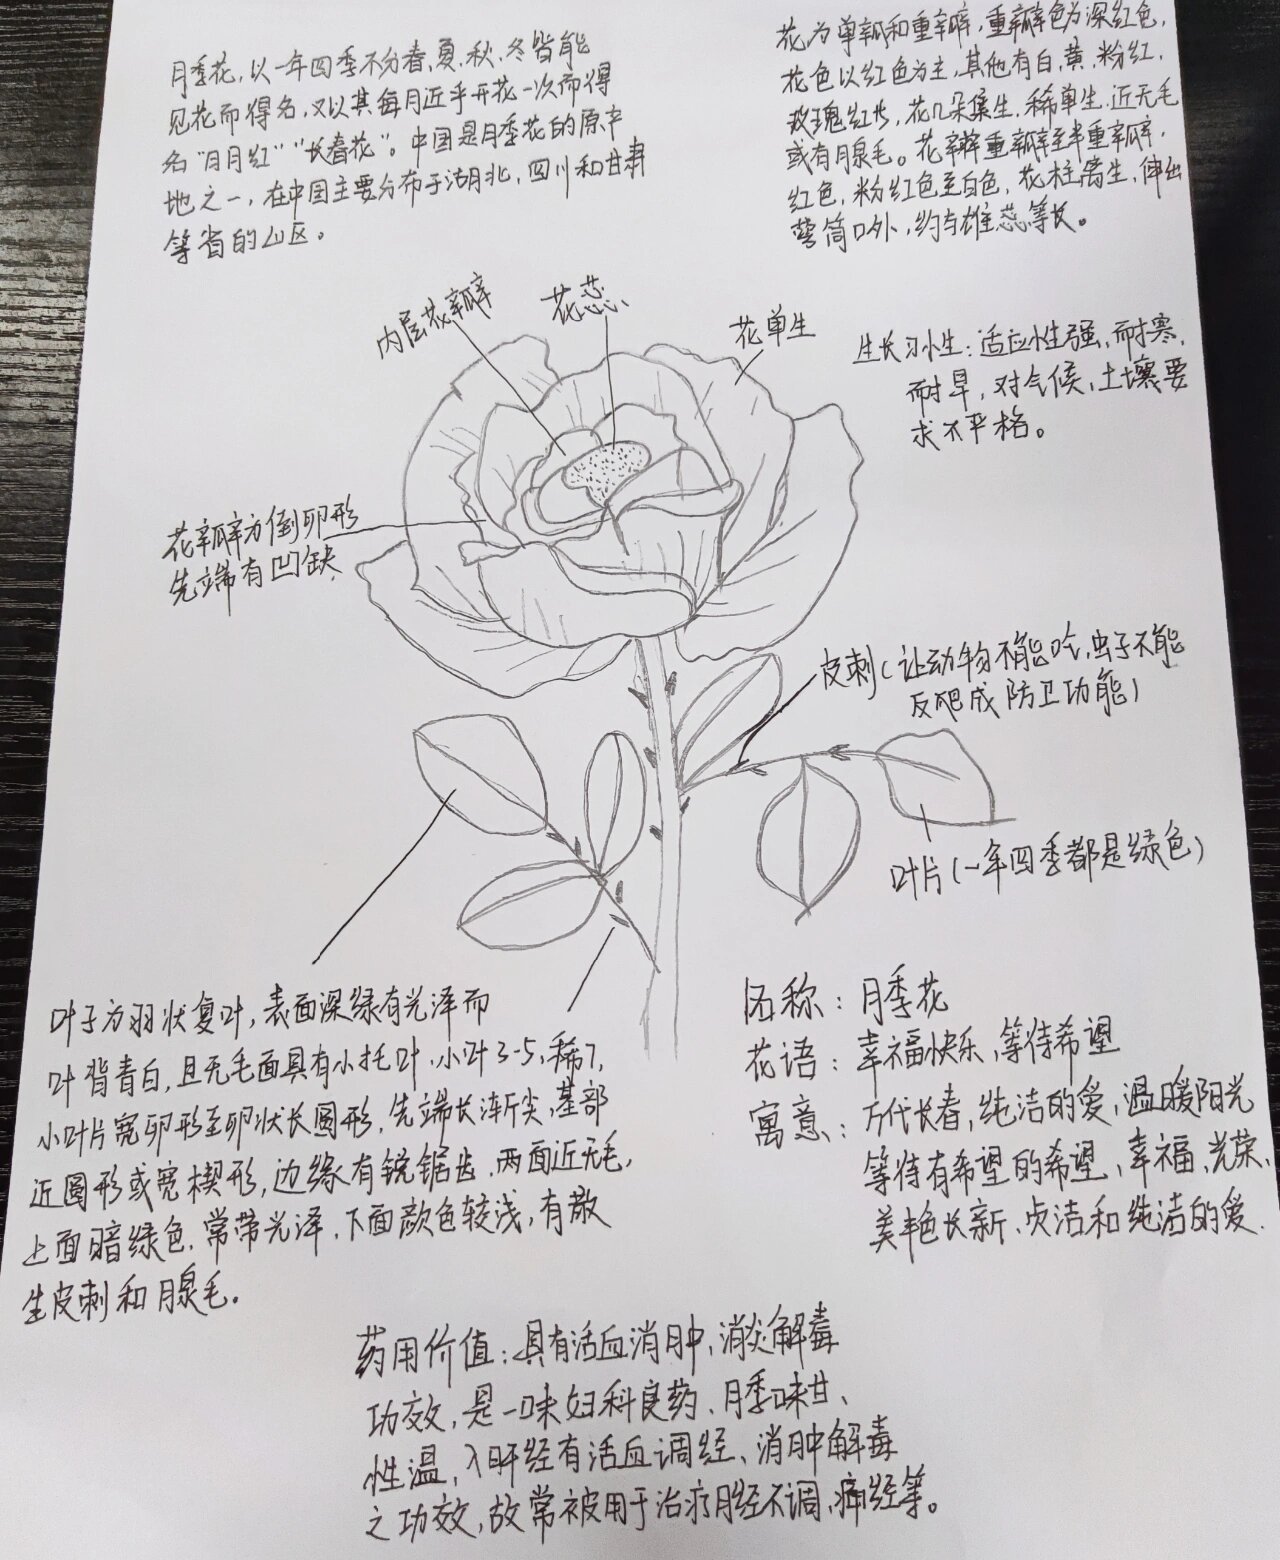 月季花，以一年四季不分春、夏、秋、冬皆能
见花而得名，又以其每月近乎开花一次而得
名“月月红”“长春花”。中国是月季花的原产
地之一，在中国主要分布于湖北、四川和甘肃
等省的山区。
花为单瓣和重瓣，重瓣色为深红色，
花色以红色为主，其他有白、黄、粉红、
玫瑰红等，花几朵集生，稀单生，近无毛
或有腺毛。花瓣重瓣至半重瓣，
红色，粉红色至白色，花柱离生，伸出
萼筒口外，约与雄蕊等长。
内层花瓣
花蕊
花单生
生长习性：适应性强，耐寒，
耐旱，对气候、土壤要
求不严格。
花瓣为倒卵形
先端有凹缺
皮刺（让动物不能吃，虫子不能
反爬成防卫功能）
叶片（一年四季都是绿色）
叶子为羽状复叶，表面深绿有光泽而
叶背青白，且无毛面具有小托叶，小叶3-5，稀7，
小叶片宽卵形至卵状长圆形，先端长渐尖，基部
近圆形或宽楔形，边缘有锐锯齿，两面近无毛，
上面暗绿色，常带光泽，下面颜色较浅，有散
生皮刺和腺毛。
名称：月季花
花语：幸福快乐，等待希望
寓意：万代长春，纯洁的爱，温暖阳光
等待有希望的希望、幸福、光荣、
美丰色长新、贞洁和纯洁的爱.
药用价值：具有活血消肿，消炎解毒
功效，是一味妇科良药、月季味甘、
性温，入肝经有活血调经、消肿解毒
之功效，故常被用于治疗月经不调，痛经等。